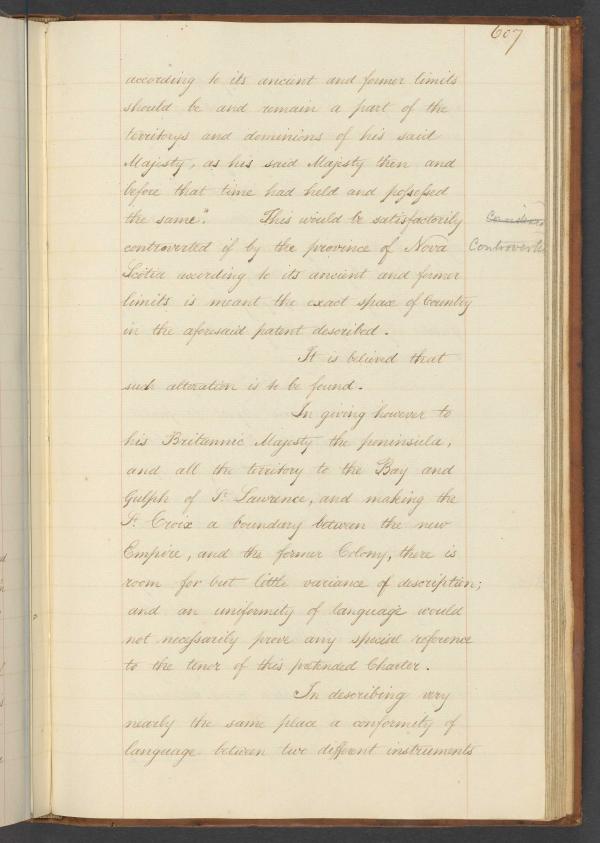 607
according to its ancient and former limits
should be and remain a part of the
territorys and dominions of his said
Majesty, as his said Majesty then and
before that time had held and possessed
the same". This would be satisfactorily
controverted if by the province of Nova
Controverte
Scotia according to its ancient and former
limits is meant the exact space of Country
in the aforesaid patent described.
It is believed that
such alteration is to be found.
In giving however to
his Britannic Majesty the peninsula,
and all the territory to the Bay and
Gulph of St Lawrence, and making the
St Croix a boundary between the new
Empire, and the former Colony, there is
room for but little variance of description;
and an uniformity of language would
not necessarily prove any special reference
to the tenor of this pretended Charter.
In describing very
nearly the same place a conformity of
language between two different instruments